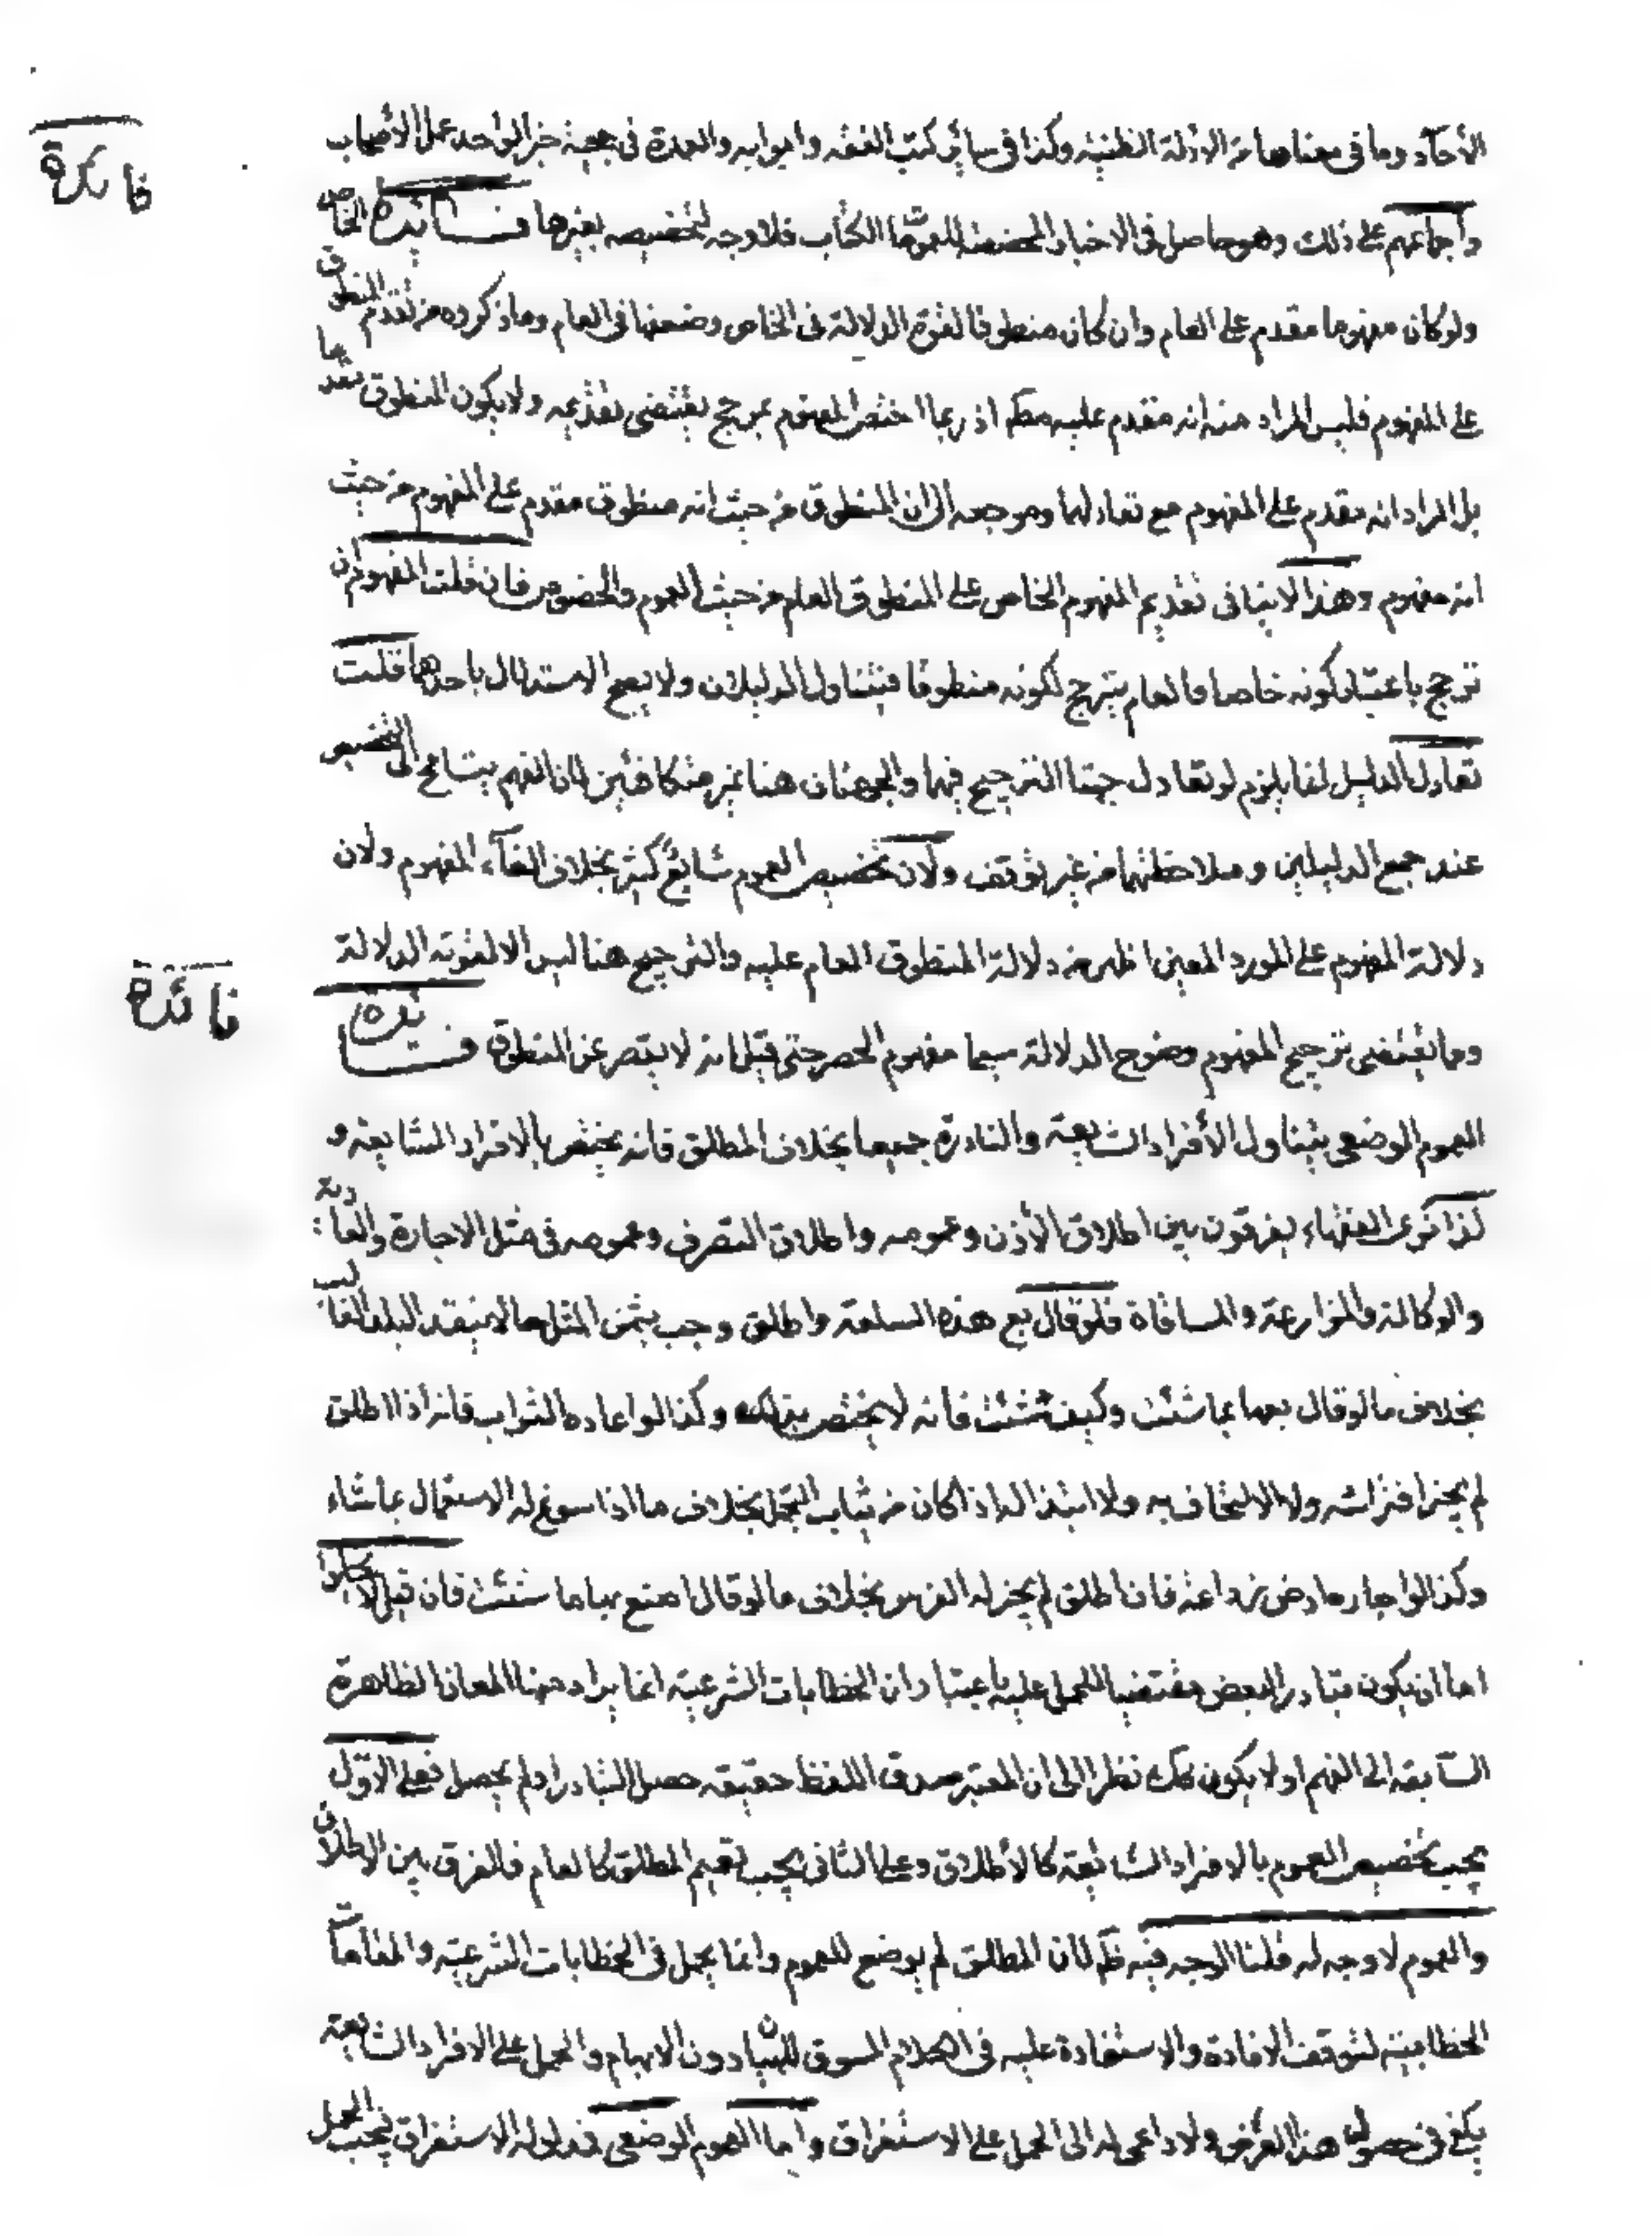 فائدة
الأحآد وما في معناها من الادلة الظنية وكذا في سائر كتب الفقه وابوابه والعمدة في حجية خبر الواحد عمل الأصحاب
واجماعهم على ذلك وهو حاصل في الاخبار المخصصة للعمومات الكتاب فلا وجه لتخصيصه بغيرها فائدة الخاص
ولو كان مفهوما مقدم على العام وان كان منطوقا لقوة الدلالة في الخاص وضعفها في العام وما ذكروه من تقدم المنطوق
على المفهوم فليس المراد منه انه متقدم عليه مطـ اذ ربما اختص المفهوم بمرجح يقتضي تقديمه ولا يكون المنطوق مقدما
بل المراد انه مقدم على المفهوم مع تعادلهما ومرجعه الى ان المنطوق من حيث انه منطوق مقدم على المفهوم من حيث
انه مفهوم وهذا لا ينافي تقديم المفهوم الخاص على المنطوق العام من حيث العموم والخصوص فان قلت المفهوم ان
ترجح باعتبار كونه خاصا فالعام يترجح لكونه منطوقا فيتناول الدليلان ولا يصح الاستدلال باحدهما قلت
تعادل الدليل انما يلزم لو تعادل جهتا الترجيح فيهما والجهتان هنا غير متكافئين لان الفهم يتسارع الى التخصيص
عند جمع الدليلين وملاحظتهما من غير توقف ولان تخصيص العموم شايع كثير بخلاف الغآء المفهوم ولان
دلالة المفهوم على المورد المعين اظهر من دلالة المنطوق العام عليه والترجيح هنا ليس الا لقوته الدلالة
فائدة
وما يقتضي ترجيح المفهوم وضوح الدلالة سيما مفهوم الحصر حتى قيل انه لا يقصر عن المنطوق فائدة
العموم الوضعي يتناول الأفراد الشايعة والنادرة جميعا بخلاف المطلق فانه يختص بالافراد الشايعة و
لذا ترى الفقهاء يفرقون بين اطلاق الأذن وعمومه واطلاق التصرف وعمومه في مثل الاجارة والعارية
والوكالة والمزارعة والمساقاة فلو قال بع هذه السلعة واطلق وجب بثمن المثل حالا بنقد البلد الغالب
بخلاف ما لو قال بعها بما شئت وكيف شئت فانه لا يختص بذلك وكذا لو اعاره الثواب فانه اذا اطلق
لم يجز افتراشه ولا الالتحاف به ولا ابتذاله اذا كان من ثياب التجمل بخلاف ما اذا سوغ له الاستعمال بما شاء
وكذا لو اجاره ارض زراعة فان اطلق لم يجز له الغرس بخلاف ما لو قال اصنع بها ما شئت فان قيل لا يخلو
اما ان يكون تبادر البعض مقتضيا للحمل عليه باعتبار ان الخطابات الشرعية انما يراد منها المعاني الظاهرة
السّابقه الى الفهم او لا يكون كك نظرا الى ان المعتبر صدق اللفظ حقيقه حصل التبادر او لم يحصل فعلى الاول
يجب تخصيص العموم بالافراد الشايعة كالأطلاق وعلى الثاني يجب تعميم المطلق كالعام فالفرق بين الاطلاق
والعموم لا وجه له قلنا الوجه فيه ظـ لان المطلق لم يوضع للعموم وانما يحمل في الخطابات الشرعية والمقامات
الخطابية لتوقف الافادة والاستفادة عليه في الكلام المسوق للبيان دون الابهام والحمل على الافراد الشايعة
يكفي في حصول هذا الغرض ولا داعي له الى الحمل على الاستغراق واما العموم الوضعي فمدلوله الاستغراق فيجب الحمل